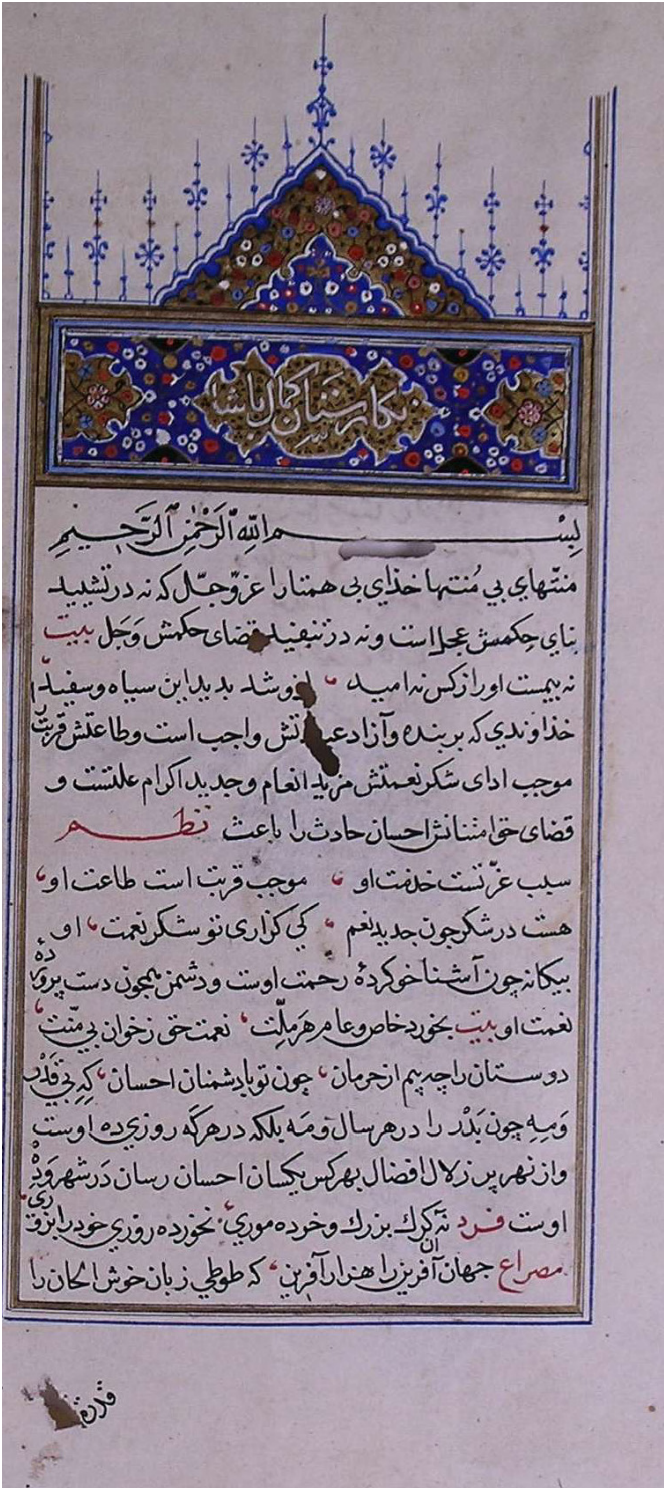 نكارستان كمال پاشا
بِسْــــــمِ اللهِ الرَّحْمٰنِ الرَّحِيمِ
منّتهاي بي مُنتها خداي بى همتا را عزّ وجلّ كه نه در تشييد
بناي حِكمش عجل است ونه در تنفيذ قضاى حكمش وَجَل بيت
نه بيمست اورا ز كس نه اميد ، ازو شد بديد اين سياه وسفيد
خداوندي كه بر بنده وآزاد عبادتش واجب است وطاعتش قربت را
موجب اداى شكر نعمتش مزيد انعام وجديد اكرام علتست و
قضاى حق امتنانش احسان حادث را باعث نظم
سبب عزّتست خدمت او ، موجب قربت است طاعت او ،
هست در شكر جون جديد نعم ، كي كزارى تو شكر نعمت او ،
بيكانه چون آشنا خو كردۀ رحمت اوست ودشمن همچون دست پروردۀ
نعمت او بيت بخورد خاص وعام هر مِلّت ، نعمت حق ز خوان بي منّت ،
دوستان را چه بيم از حرمان ، چون تو با دشمنان احسان ، كِه بي قَدْر
وَمِه چون بَدْر را در هر سال ومَه بلكه در هر كَه روزي ده اوست
واز نهر پر زلال افضال بهر كس يكسان احسان رسان دَر شهر وَدْه
اوست فرد نه كرك بزرك وخرده موري ، نخورده روزي خود را بزورى ،
مصراع جهان آفرين را هزاران آفرين ، كه طوطي زبان خوش الحان را